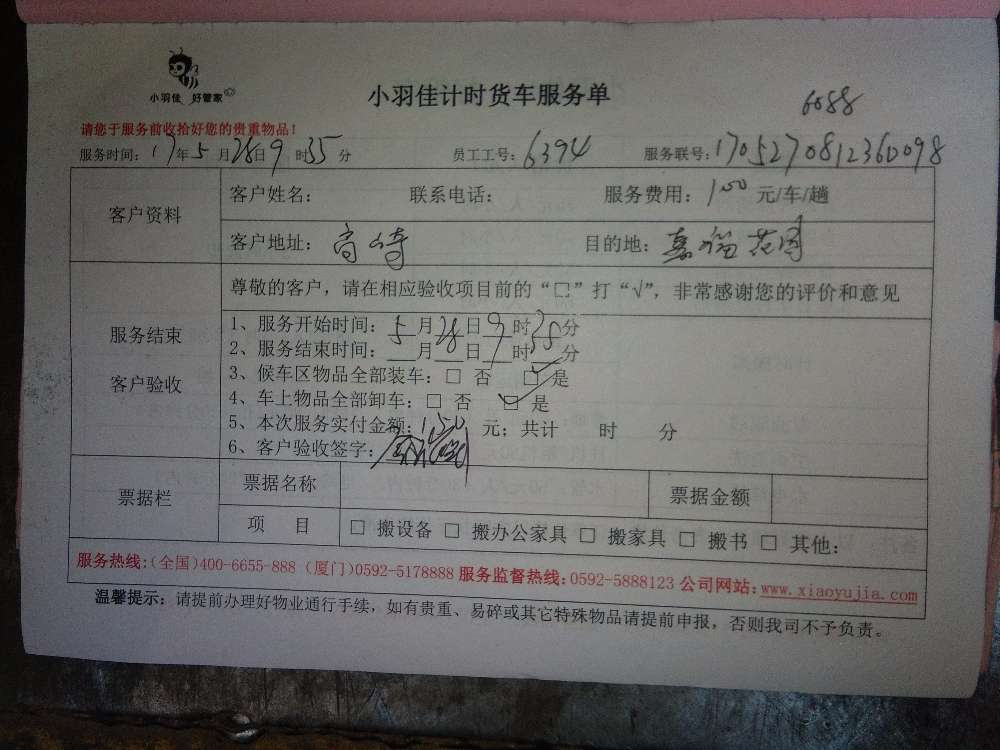 小羽佳 好管家
小羽佳计时货车服务单
6088
请您于服务前收拾好您的贵重物品！
服务时间：17年5月28日9时35分 员工工号：6394 服务联号：1705270812360098
客户资料
客户姓名： 联系电话： 服务费用：100元/车/趟
客户地址：高崎 目的地：嘉福花园
服务结束
客户验收
尊敬的客户，请在相应验收项目前的“□”打“√”，非常感谢您的评价和意见
1、服务开始时间：5月28日9时35分
2、服务结束时间：__月__日__时__分
3、候车区物品全部装车：□ 否 □ 是
4、车上物品全部卸车：□ 否 □ 是
5、本次服务实付金额：150 元；共计 时 分
6、客户验收签字：
票据栏
票据名称 票据金额
项 目 □ 搬设备 □ 搬办公家具 □ 搬家具 □ 搬书 □ 其他：
服务热线：（全国）400-6655-888 （厦门）0592-5178888 服务监督热线：0592-5888123 公司网站：www.xiaoyujia.com
温馨提示：请提前办理好物业通行手续，如有贵重、易碎或其它特殊物品请提前申报，否则我司不予负责。